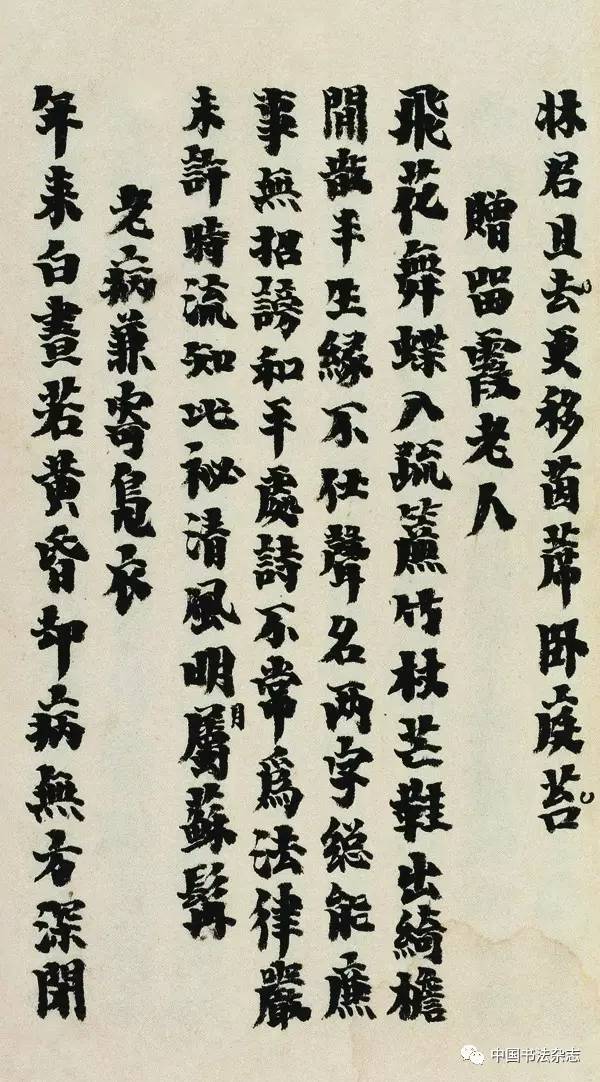 林君且去更移茵蓆卧庭苔
贈留霞老人
飛花舞蝶入疏簾竹杖芒鞋出綺檐
閒散平生緣不仕聲名兩字總能廉
事無招謗和平處詩不常為法律嚴
未許時流知此祕清風明月屬蘇髯
老病兼寄鳧衣
年来白晝若黄昏却病無方深閉
中国书法杂志